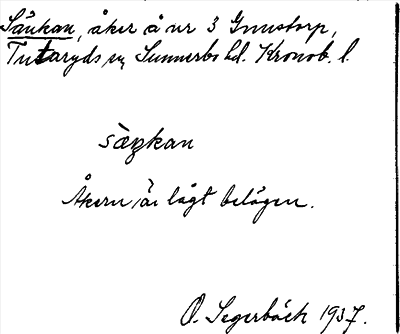 Sänkan, åker å nr 3 Gnustorp,
Tutaryds sn, Sunnerbo hd. Kronob. l.
sæŋkan
Åkern är lågt belägen.
O. Segerbäck 1937.